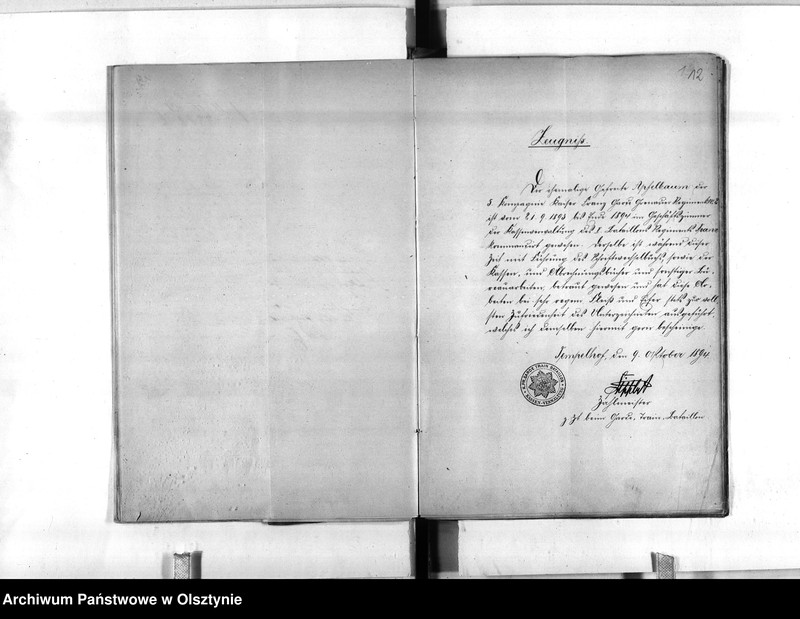 112
Zeugniß.
Der ehemalige Gefreite Apfelbaum der
5. Kompagnie Kaiser Franz Garde Grenadier Regiments No 2
ist vom 21.9.1893 bis Ende 1894 im Geschäftszimmer
der Kassenverwaltung des I. Bataillons Regiments Franz
kommandirt gewesen. Derselbe ist während dieser
Zeit mit Führung des Schriftwechselbuchs, sowie der
Kassen- und Abrechnungsbücher und sonstiger Bü-
reauarbeiten betraut gewesen und hat diese Ar-
beiten bei sehr regem Fleiß und Eifer stets zur voll-
sten Zufriedenheit des Unterzeichneten ausgeführt,
welches ich demselben hiermit gern bescheinige.
Tempelhof, den 9. Oktober 1894
Zahlmeister
z. Zt. beim Garde-Train-Bataillon
GARDE TRAIN BATAILLON
KASSEN-VERWALTUNG
Archiwum Państwowe w Olsztynie